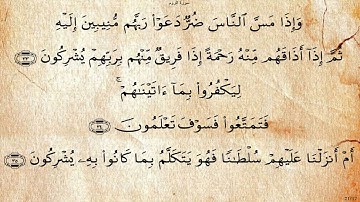 سورة الروم
وَإِذَا مَسَّ ٱلنَّاسَ ضُرٌّ دَعَوْا۟ رَبَّهُم مُّنِيبِينَ إِلَيْهِ
ثُمَّ إِذَآ أَذَاقَهُم مِّنْهُ رَحْمَةً إِذَا فَرِيقٌ مِّنْهُم بِرَبِّهِمْ يُشْرِكُونَ ٣٣
لِيَكْفُرُوا۟ بِمَآ ءَاتَيْنَٰهُمْ ۚ
فَتَمَتَّعُوا۟ فَسَوْفَ تَعْلَمُونَ ٣٤
أَمْ أَنزَلْنَا عَلَيْهِمْ سُلْطَٰنًا فَهُوَ يَتَكَلَّمُ بِمَا كَانُوا۟ بِهِۦ يُشْرِكُونَ ٣٥